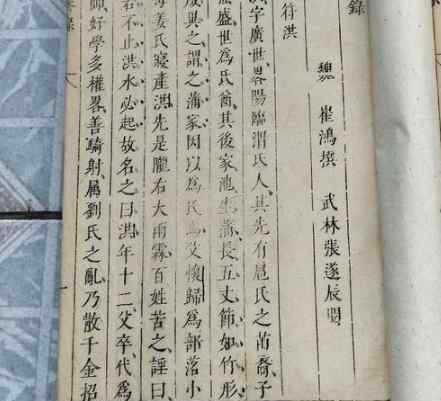 錄
魏 崔鴻撰 武林張遂辰閱
苻洪
字廣世畧陽臨渭氏人其先有扈氏之苗裔子
盛世為氏酋其後家池生蒲長五丈節如竹形
咸異之謂之蒲家因以為氏焉父懷歸為部落小
母姜氏寢產洪先是隴右大雨霖百姓苦之謠曰
若不止洪水必起故名之曰洪年十二父卒代為
好學多權畧善騎射屬劉氏之亂乃散千金招
錄